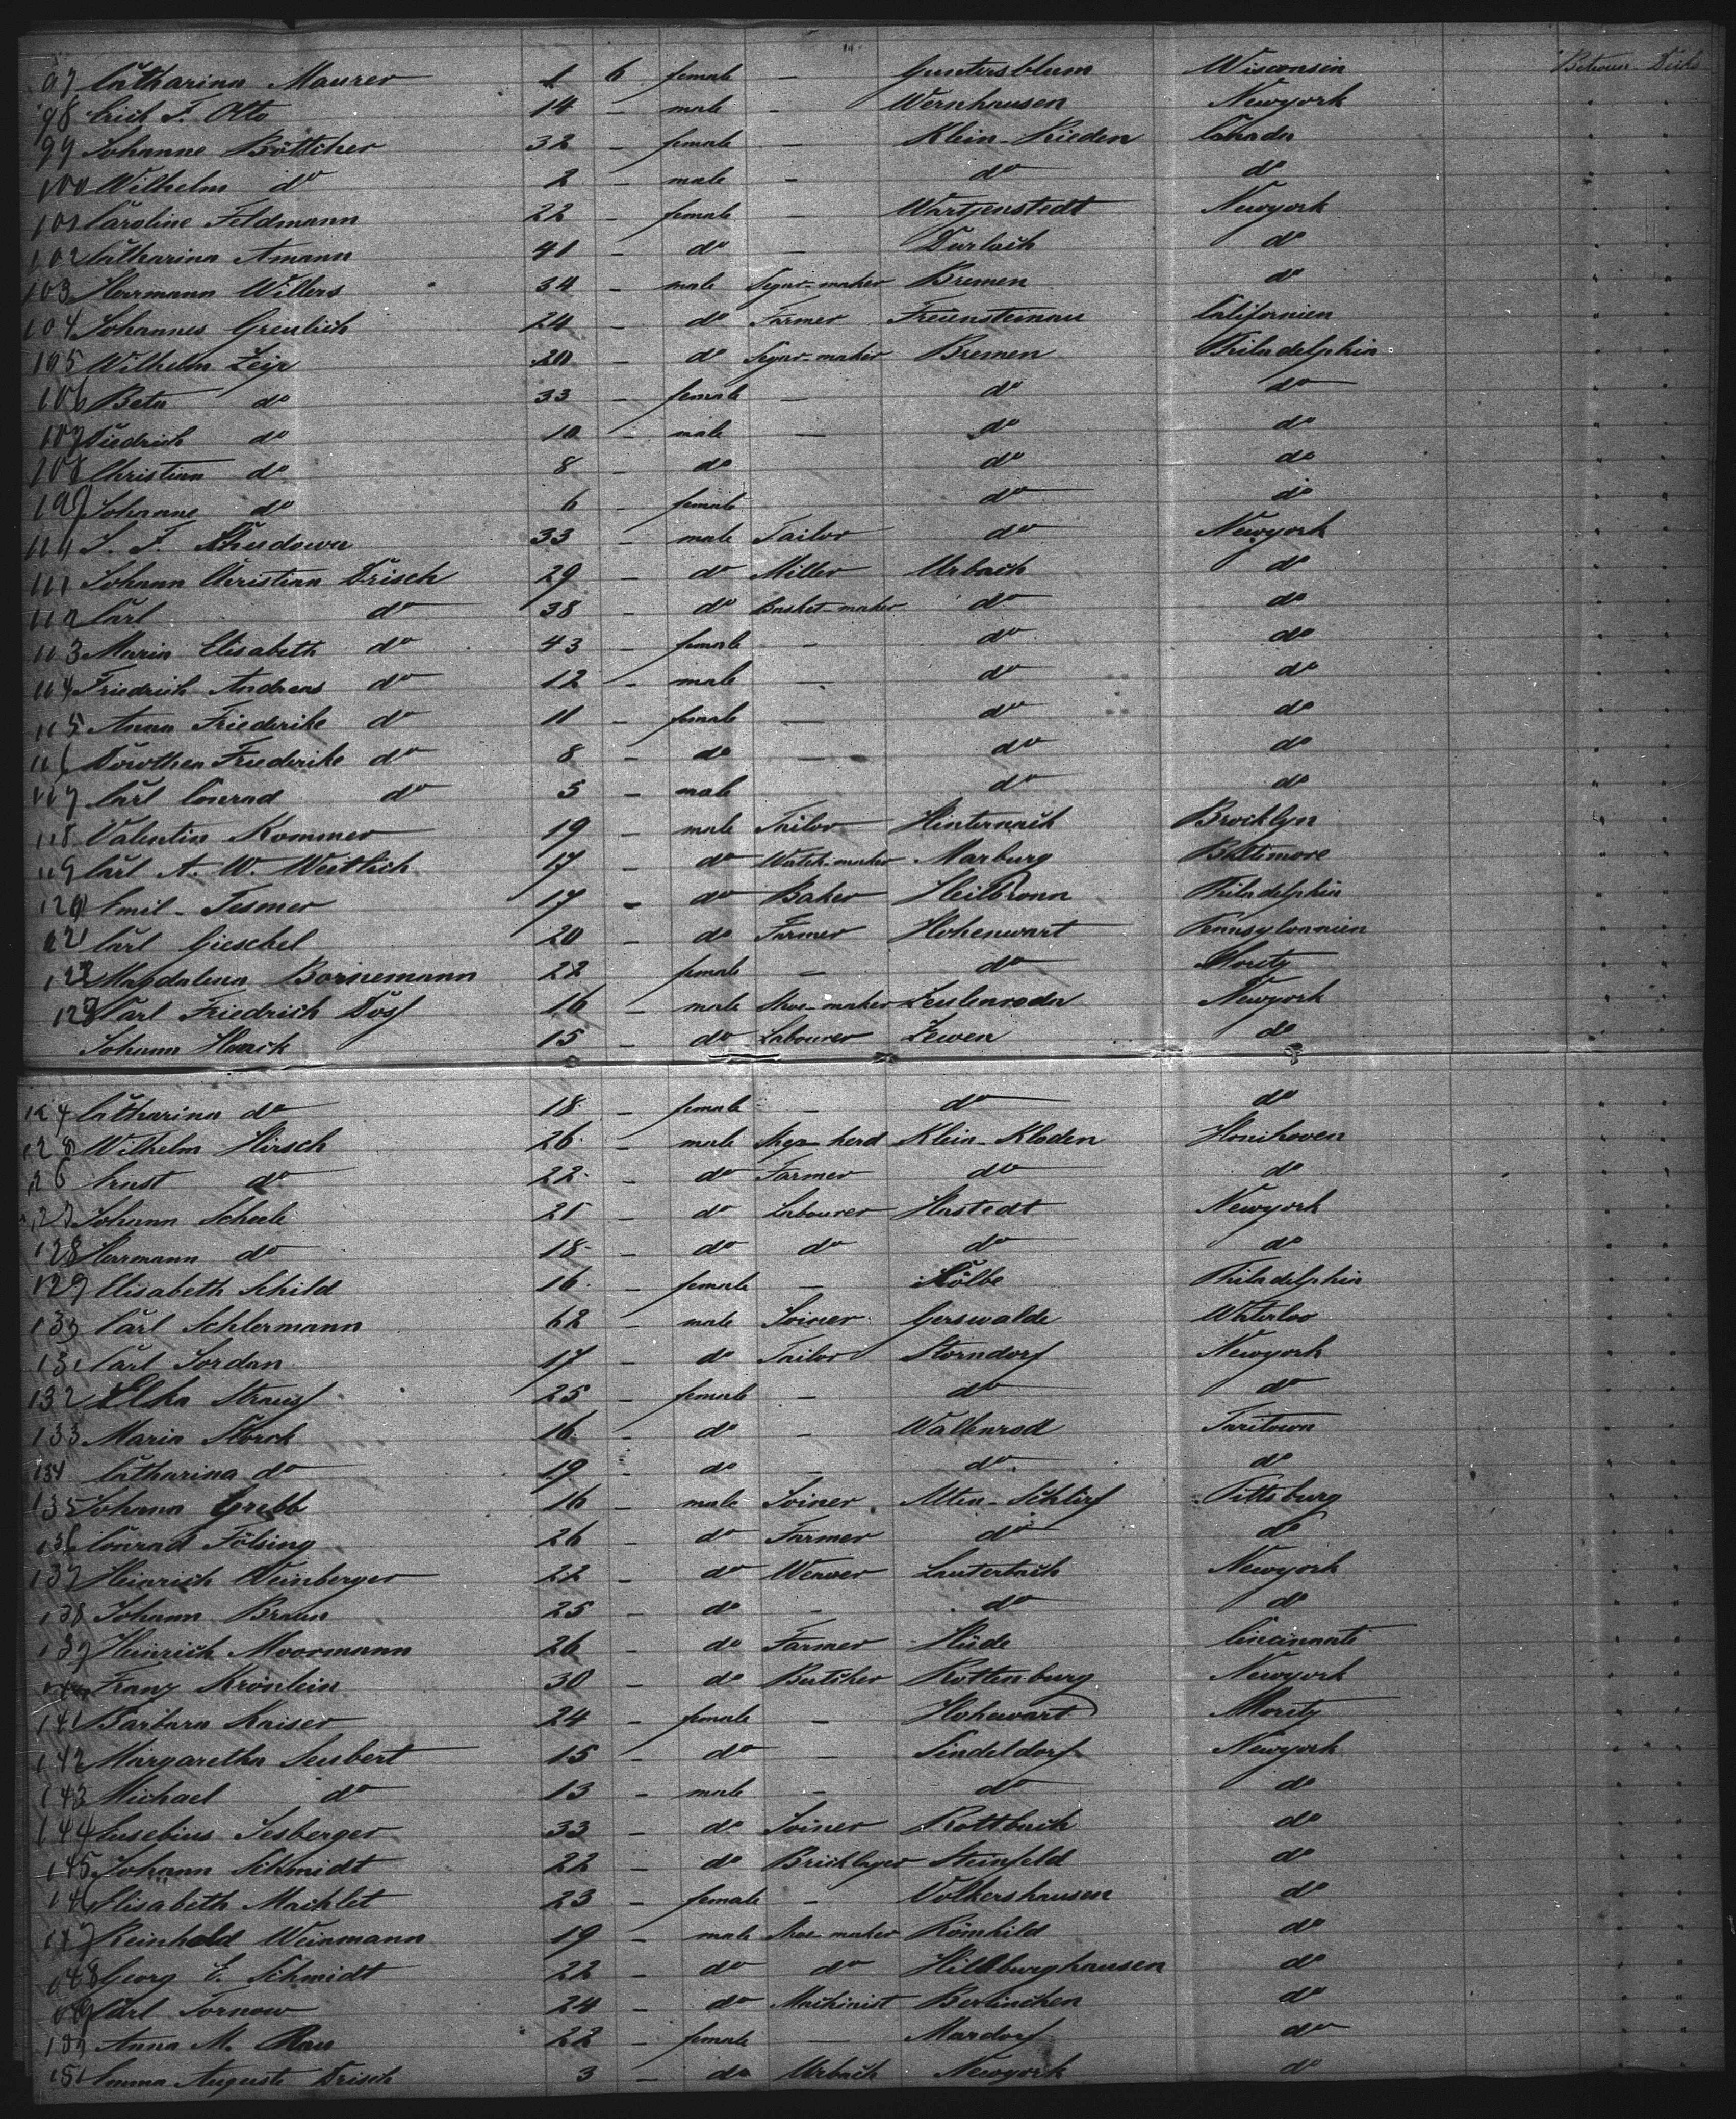 97 Catharina Maurer 1 6 female — Guntersblum Wisconsin Between Decks
98 Erich F. Otto 14 — male — Wernhausen Newyork
99 Johanne Böttcher 32 — female — Klein-Rieden Canada
100 Wilhelm do 2 — male — do do
101 Caroline Feldmann 22 — female — Wartjenstedt Newyork
102 Catharina Amann 41 — do — Durlach do
103 Herrmann Willers 34 — male Segar-maker Bremen do
104 Johannes Greulich 24 — do Farmer Freiensteinau Californien
105 Wilhelm Zeijr 20 — do Segar-maker Bremen Philadelphia
106 Beta do 33 — female — do do
107 Diedrich do 10 — male — do do
108 Christian do 8 — do do do
109 Johanne do 6 — female do do
110 J. F. 33 — male Tailor do Newyork
111 Johann Christian Drisch 29 — do Miller Urbach do
112 Carl do 38 — do Basket-maker do do
113 Maria Elisabeth do 43 — female — do do
114 Friedrich Andreas do 12 — male — do do
115 Anna Friederike do 11 — female — do do
116 Dorothea Friederike do 8 — do — do do
117 Carl Conrad do 5 — male do do
118 Valentin Kommer 19 — male Tailor Hinternach Brocklyn
119 Carl A. W. Weitlich 17 — do Watch-maker Marburg Baltimore
120 Emil Tesmer 17 — do Baker Heilbronn Philadelphia
121 Carl Gieschel 20 — do Farmer Hohenwart Pennsylvannien
122 Magdalena Bornemann 22 female — do Moritz
123 Carl Friedrich Döss 16 — male Shoe-maker Zeulenroda Newyork
Johann Hauck 15 — do Labourer Zewen do
124 Catharina do 18 — female — do do
125 Wilhelm Hirsch 26 — male Shep-herd Klein-Kloden
126 Ernst do 22 — do Farmer do do
127 Johann Scheele 21 — do Labourer Hastedt Newyork
128 Herrmann do 18 — do do do do
129 Elisabeth Schild 16 — female — Kölbe Philadelphia
130 Carl Schlermann 62 — male Joiner Gerswalde Waterloo
131 Carl Jordan 17 — do Tailor Storndorf Newyork
132 Elka Strauss 25 — female — do do
133 Maria Storck 16 — do — Wallenrod Taritown
134 Catharina do 19 — do — do do
135 Johann Grebb 16 — male Joiner Alten-Schlirf Pittsburg
136 Conrad Fölsing 26 — do Farmer do do
137 Heinrich Weinberger 22 — do Weaver Lauterbach Newyork
138 Johann Braun 25 — do — do do
139 Heinrich Moormann 26 — do Farmer Hüde Cincinnati
140 Franz Krönlein 30 — do Butcher Rottenburg Newyork
141 Barbara Kaiser 24 — female — Hohenwart Moritz
142 Margaretha Seubert 15 — do — Sindeldorf Newyork
143 Michael do 13 — male — do do
144 Eusebius Jesberger 33 — do Joiner Rottbach do
145 Johann Schmidt 22 — do Bricklayer Steinfeld do
146 Elisabeth Machlet 23 — female — Volkershausen do
147 Reinhold Weinmann 19 — male Shoe-maker Römhild do
148 Georg E. Schmidt 22 — do do Hildburghausen do
149 Carl Tornow 24 — do Machinist Berlinchen do
150 Anna M. Rau 22 — female — Mardorf do
151 Emma Auguste Drisch 3 — do Urbach Newyork do